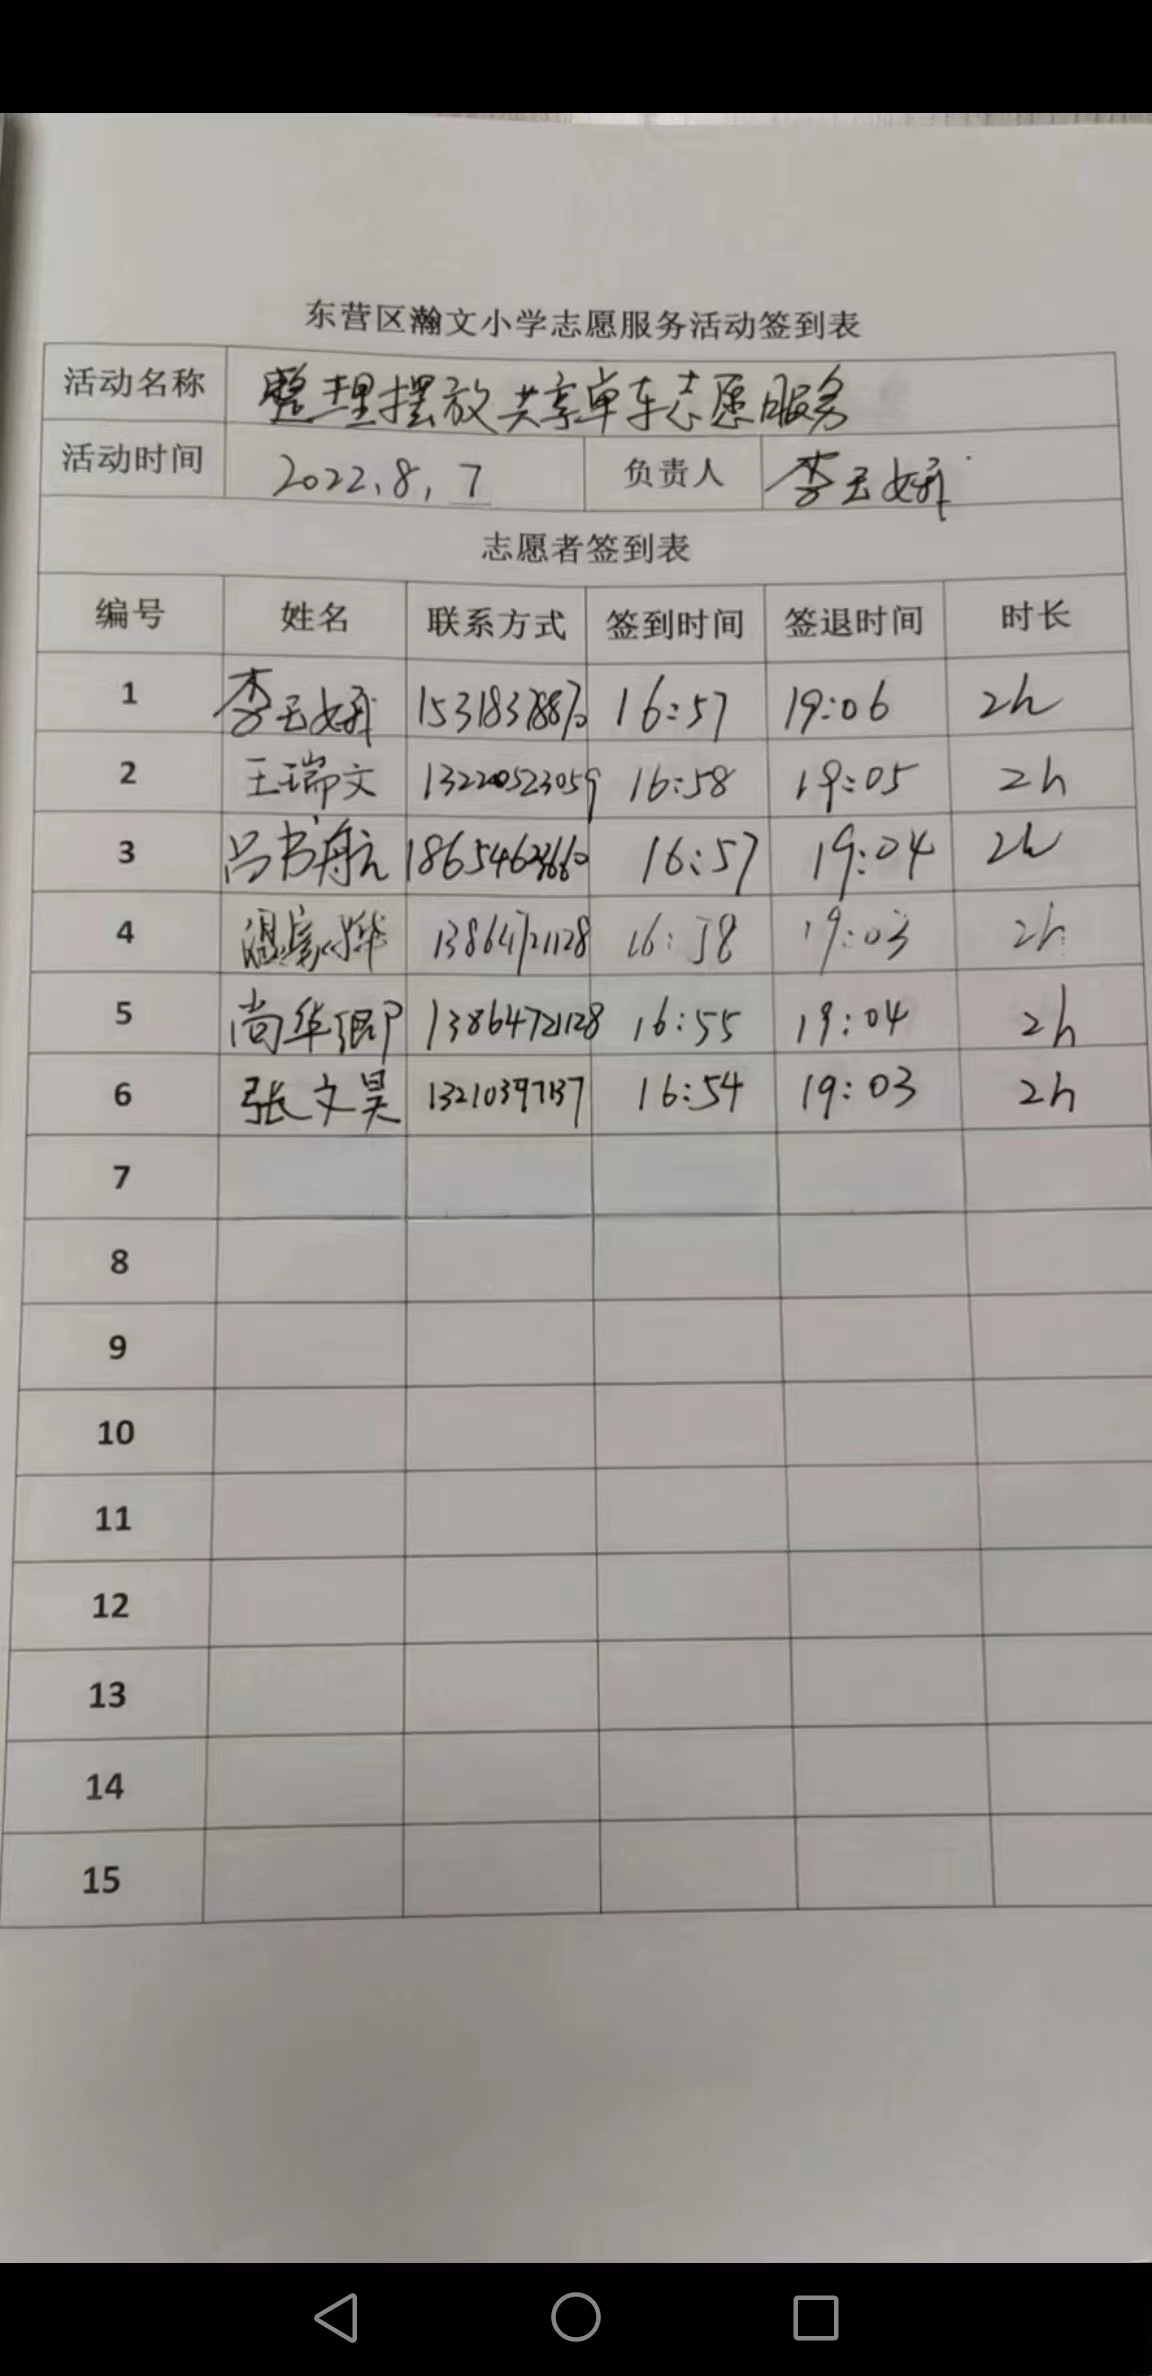 东营区瀚文小学志愿服务活动签到表
活动名称 整理摆放共享单车志愿服务
活动时间 2022.8.7 负责人 李
志愿者签到表
编号 姓名 联系方式 签到时间 签退时间 时长
1 李 16:57 19:06 2h
2 王瑞文 13220523059 16:58 19:05 2h
3 吕书航 16:57 19:04 2h
4 16:58 19:03 2h
5 尚华 13864721128 16:55 19:04 2h
6 张文昊 13210397137 16:54 19:03 2h
7
8
9
10
11
12
13
14
15